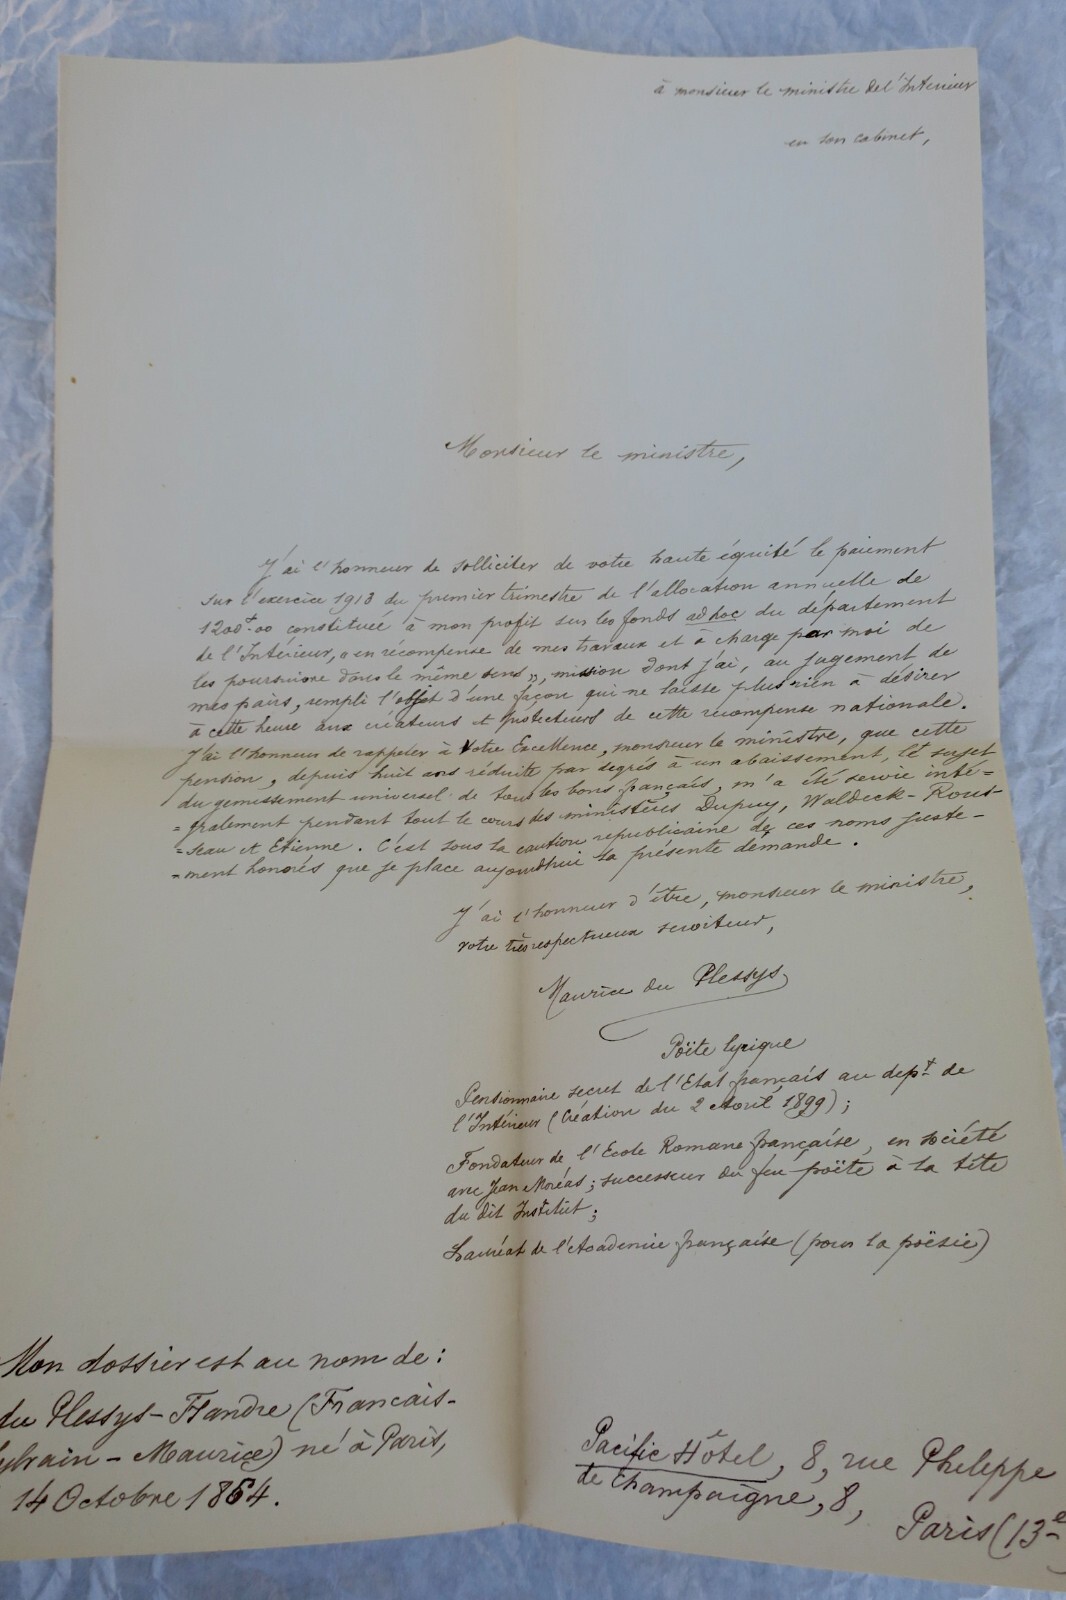 à monsieur le ministre de l'Intérieur
en son cabinet,
Monsieur le ministre,
J'ai l'honneur de solliciter de votre haute équité le paiement
sur l'exercice 1913 du premier trimestre de l'allocation annuelle de
1200f.00 constituée à mon profit sur les fonds ad hoc du département
de l'Intérieur, « en récompense de mes travaux et à charge par moi de
les poursuivre dans le même sens », mission dont j'ai, au jugement de
mes pairs, rempli l'objet d'une façon qui ne laisse plus rien à désirer
à cette heure aux créateurs et protecteurs de cette récompense nationale.
J'ai l'honneur de rappeler à Votre Excellence, monsieur le ministre, que cette
pension, depuis huit ans réduite par degrés à un abaissement, sujet
du gémissement universel de tous les bons français, m'a été servie inté=
=gralement pendant tout le cours des ministères Dupuy, Waldeck-Rous=
=seau et Etienne. C'est sous la caution républicaine de ces noms juste=
=ment honorés que je place aujourdhui la présente demande.
J'ai l'honneur d'être, monsieur le ministre,
votre très respectueux serviteur,
Maurice du Plessys
Poëte lyrique
Pensionnaire secret de l'Etat français au dept de
l'Intérieur (Création du 2 Avril 1899);
Fondateur de l'Ecole Romane française, en société
avec Jean Moréas; successeur du feu poëte à la tête
du dit Institut;
Lauréat de l'Academie française (pour la poësie)
Mon dossier est au nom de:
du Plessys-Flandre (Francois-
Sylvain-Maurice) né à Paris,
14 Octobre 1864.
Pacific Hôtel, 8, rue Pheleppe
de Champaigne, 8,
Paris (13e